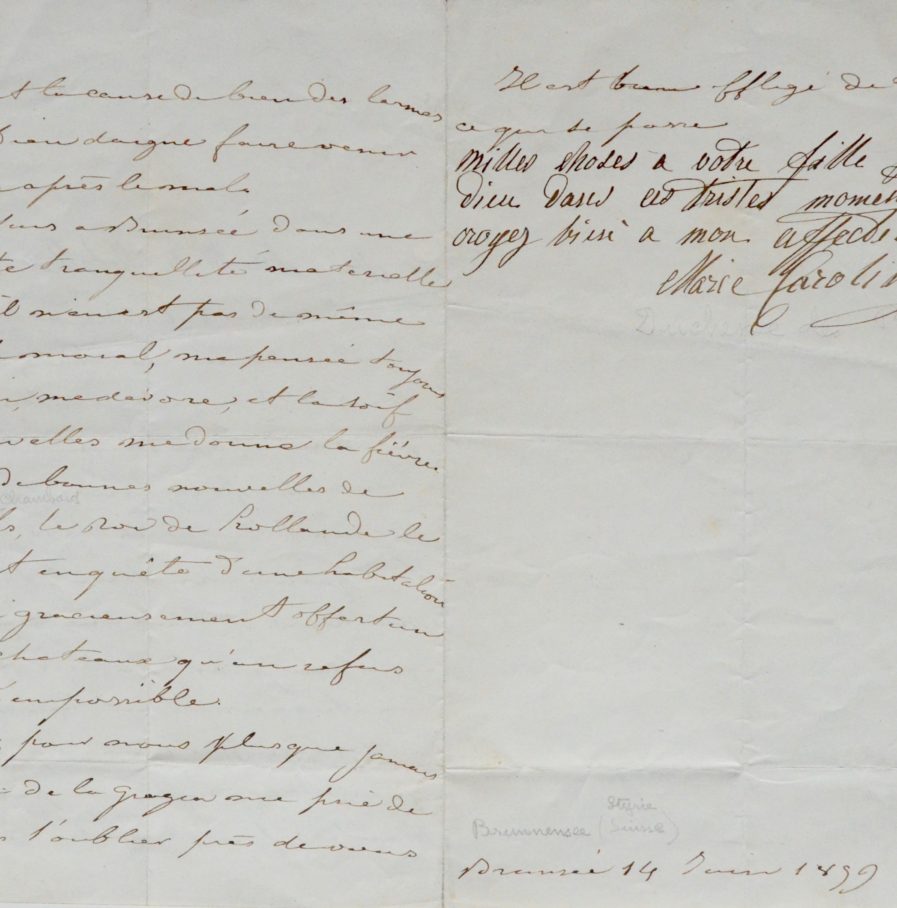 la cause de bien des larmes
Dieu daigne faire venir
après le mal
a Brunsée dans une
tranquellité materielle
il n'en est pas de même
moral, ma pensée toujours
me devore, et la soif
me donne la fièvre
de bonnes nouvelles de
Chambord
le Roi de Hollande le
en quête d'une habitation
gracieusement offert un
chateaux qu'un refus
impossible.
pour nous plus que jamais
de la me prie de
l'oublier près de vous
Il est bien affligé de
ce qui se passe
milles choses a votre fille
dieu dans ces tristes momen
croyez bien a mon affecti
Marie Carolin
Duchesse de
Styrie
Brunnensee (Suisse)
Brunsée 14 Juin 1859